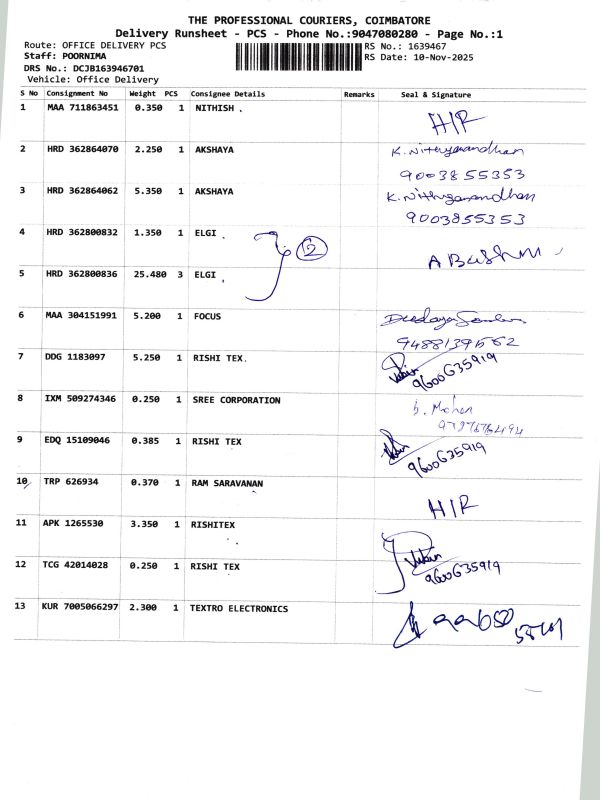 THE PROFESSIONAL COURIERS, COIMBATORE
Delivery Runsheet - PCS - Phone No.:9047080280 - Page No.:1
Route: OFFICE DELIVERY PCS
RS No.: 1639467
Staff: POORNIMA
RS Date: 10-Nov-2025
DRS No.: DCJB163946701
Vehicle: Office Delivery
S No Consignment No Weight PCS Consignee Details Remarks Seal & Signature
1 MAA 711863451 0.350 1 NITHISH . H/R
2 HRD 362864070 2.250 1 AKSHAYA K. Nithyanandhan
9003855353
3 HRD 362864062 5.350 1 AKSHAYA K. Nithyanandhan
9003855353
4 HRD 362800832 1.350 1 ELGI . 2
5 HRD 362800836 25.480 3 ELGI . A
6 MAA 304151991 5.200 1 FOCUS
7 DDG 1183097 5.250 1 RISHI TEX.
9600635919
8 IXM 509274346 0.250 1 SREE CORPORATION b. Mohan
9 EDQ 15109046 0.385 1 RISHI TEX
9600635919
10 TRP 626934 0.370 1 RAM SARAVANAN H/R
11 APK 1265530 3.350 1 RISHITEX
12 TCG 42014028 0.250 1 RISHI TEX
9600635919
13 KUR 7005066297 2.300 1 TEXTRO ELECTRONICS